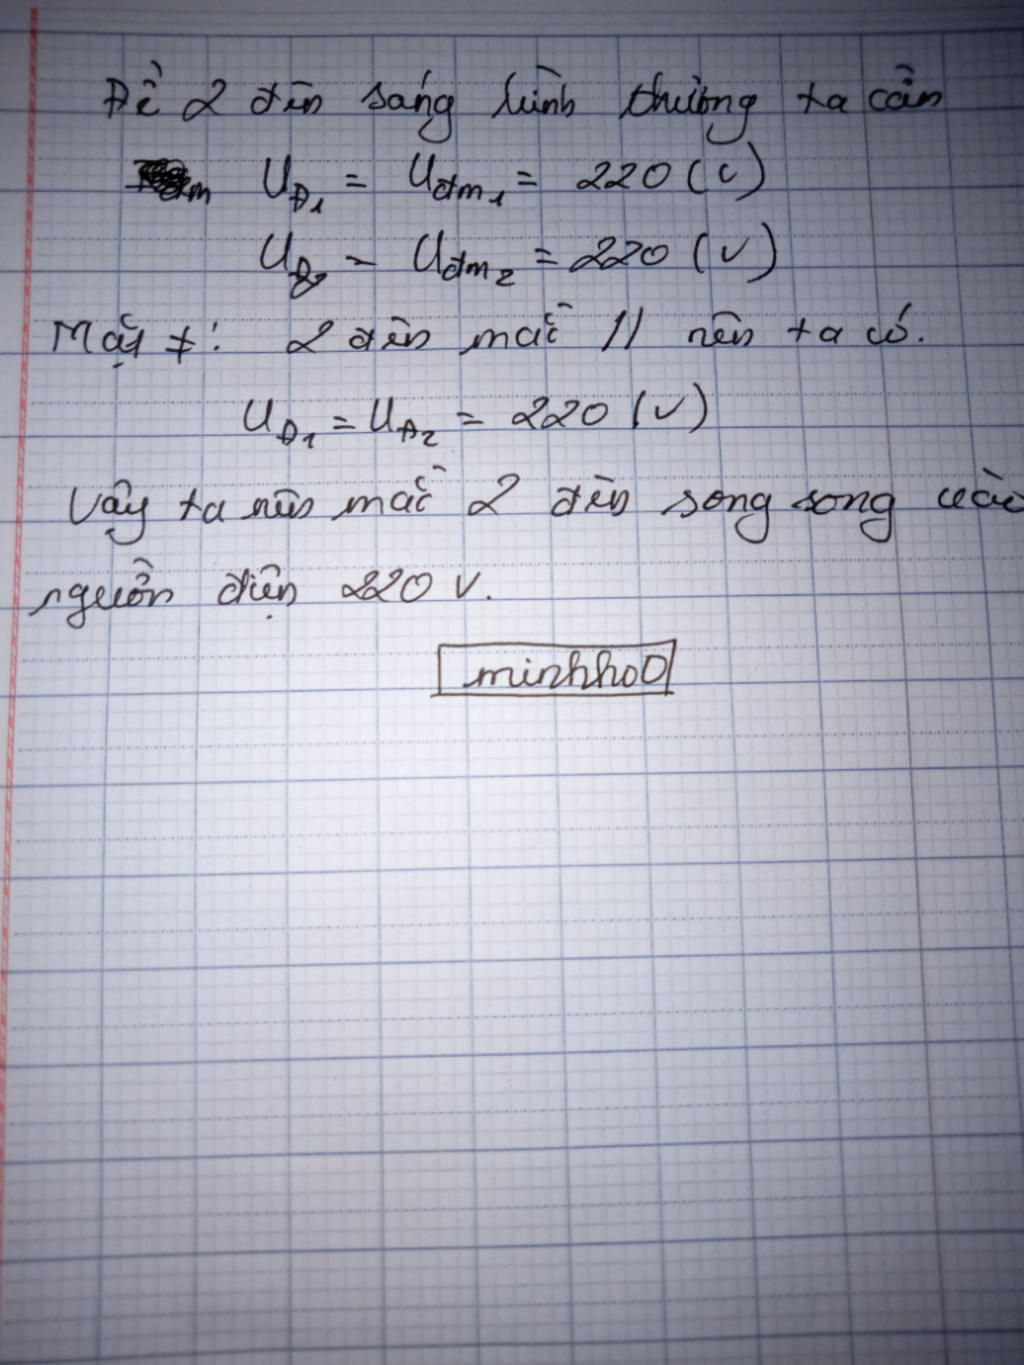 Để 2 đèn sáng bình thường ta cần
U_Đ1 = U_đm1 = 220 (V)
U_Đ2 = U_đm2 = 220 (V)
Mặt ≠: 2 đèn mắc // nên ta có.
U_Đ1 = U_Đ2 = 220 (V)
Vậy ta nên mắc 2 đèn song song vào
nguồn điện 220 V.
minhho0